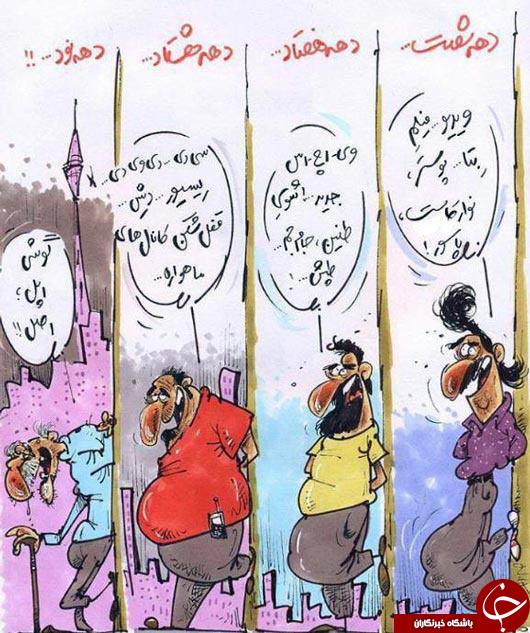 دهه شصت...
ویدیو... فیلم
بتا... پوستر،
نوار کاست،
پاسور!
دهه هفتاد...
وی-اچ-اس
جدید... شوی
طنین، جام جم...
دهه هشتاد...
سی دی... دی وی دی...
رسیور... دیش...
قفل شکن کانال های
ماهواره...
دهه نود...!!
گوشی
اپل،
اصل!!
باشگاه خبرنگاران